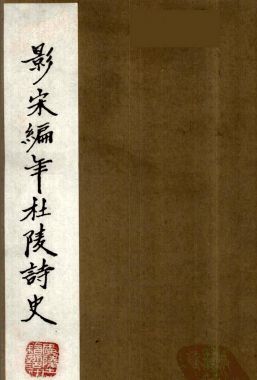 影宋編年杜陵詩史